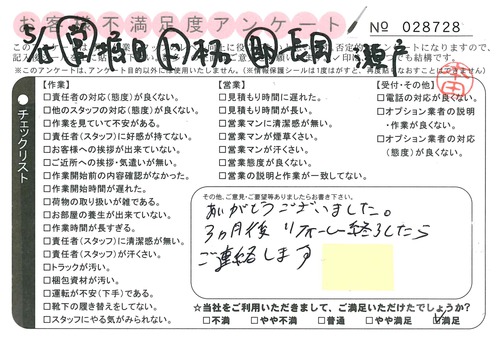 お客様不満足度アンケート
№ 028728
※このアンケートは、アンケート目的以外には使用いたしません。(※情報保護シールは1度はがすと、再度貼りなおすことはできません)
チェックリスト
【作業】
□責任者の対応(態度)が良くない。
□他のスタッフの対応(態度)が良くない。
□作業を見ていて不安がある。
□責任者(スタッフ)に好感が持てない。
□お客様への挨拶が出来ていない。
□ご近所への挨拶・気遣いが無い。
□作業開始前の内容確認がなかった。
□作業開始時間が遅れた。
□荷物の取り扱いが雑である。
□お部屋の養生が出来ていない。
□作業時間が長すぎる。
□責任者(スタッフ)に清潔感が無い。
□責任者(スタッフ)が汗くさい。
□トラックが汚い。
□梱包資材が汚い。
□運転が不安(下手)である。
□靴下の履き替えをしてない。
□スタッフにやる気がみられない。
【営業】
□見積もり時間に遅れた。
□見積もり時間が長い。
□営業マンに清潔感が無い。
□営業マンが煙草くさい。
□営業マンが汗くさい。
□営業態度が良くない。
□営業の説明と作業が一致してない。
【受付・その他】
□電話の対応が良くない。
□オプション業者の説明
・作業が良くない。
□オプション業者の対応
(態度)が良くない。
その他、ご意見・ご要望等ありましたらお書き下さい。
ありがとうございました。
3ヵ月後リフォーム終了したら
ご連絡します
★当社をご利用いただきまして、ご満足いただけたでしょうか?
□不満 □やや不満 □普通 □やや満足 ☑満足